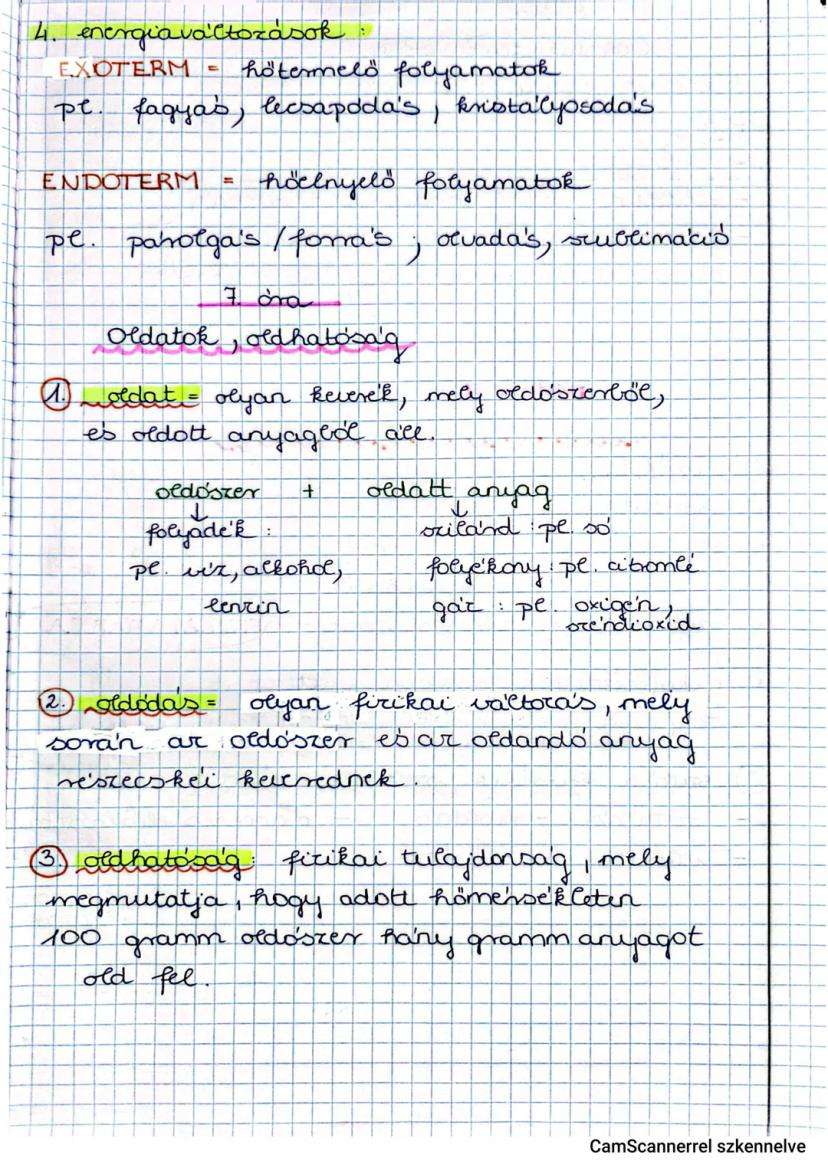 4. energiaváltozások :
EXOTERM = hőtermelő folyamatok
pl. fagyás, lecsapódás, kristályosodás
ENDOTERM = hőelnyelő folyamatok
pl. párolgás / forrás ; olvadás, szublimáció
7. óra
Oldatok, oldhatóság
1. oldat = olyan keverék, mely oldószerből,
és oldott anyagból áll.
oldószer + oldatt anyag
↓ ↓
folyadék : szilánd : pl. só
pl. víz, alkohol, folyékony : pl. citromlé
benzin gáz : pl. oxigén,
széndioxid
2. oldódás = olyan fizikai változás, mely
során az oldószer és az oldandó anyag
részecskéi keverednek.
3. oldhatóság : fizikai tulajdonság, mely
megmutatja, hogy adott hőmérsékleten
100 gramm oldószer hány gramm anyagot
old fel.
CamScannerrel szkennelve